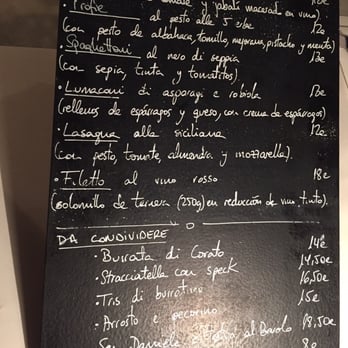 y jabalí macerado en vino)
· Trofie al pesto alle 5 erbe 12€
(con pesto de albahaca, tomillo, mejorana, pistacho y menta)
· Spaghettoni al nero di seppia 13€
(con sepia, tinta y tomatitos)
· Lumaconi di asparagi e robiola 13€
(rellenos de espárragos y queso, con crema de espárragos)
· Lasagna alla siciliana 12€
(con pesto, tomate, almendra y mozzarella).
· Filetto al vino rosso 18€
(solomillo de ternera (250g) en reducción de vino tinto).
DA CONDIVIDERE
· Burrata di Corato 14€
· Stracciatella con speck 14,50€
· Tris di burratine 16,50€
· Arrosto e pecorino 15€
San Daniele al Barolo 18,50€
8€